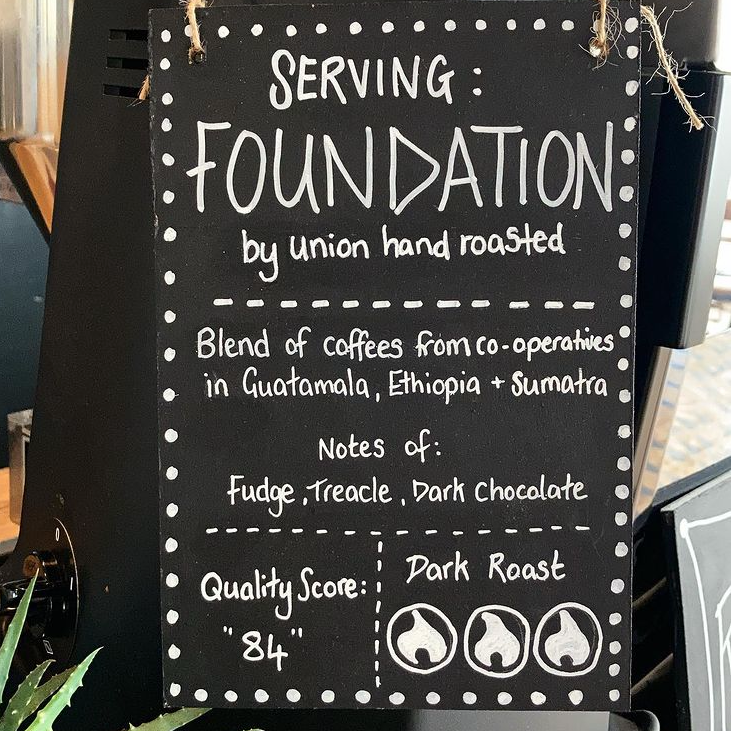 SERVING:
FOUNDATION
by union hand roasted
Blend of coffees from co-operatives
in Guatamala, Ethiopia + Sumatra
Notes of:
Fudge, Treacle, Dark Chocolate
Quality Score:
"84"
Dark Roast